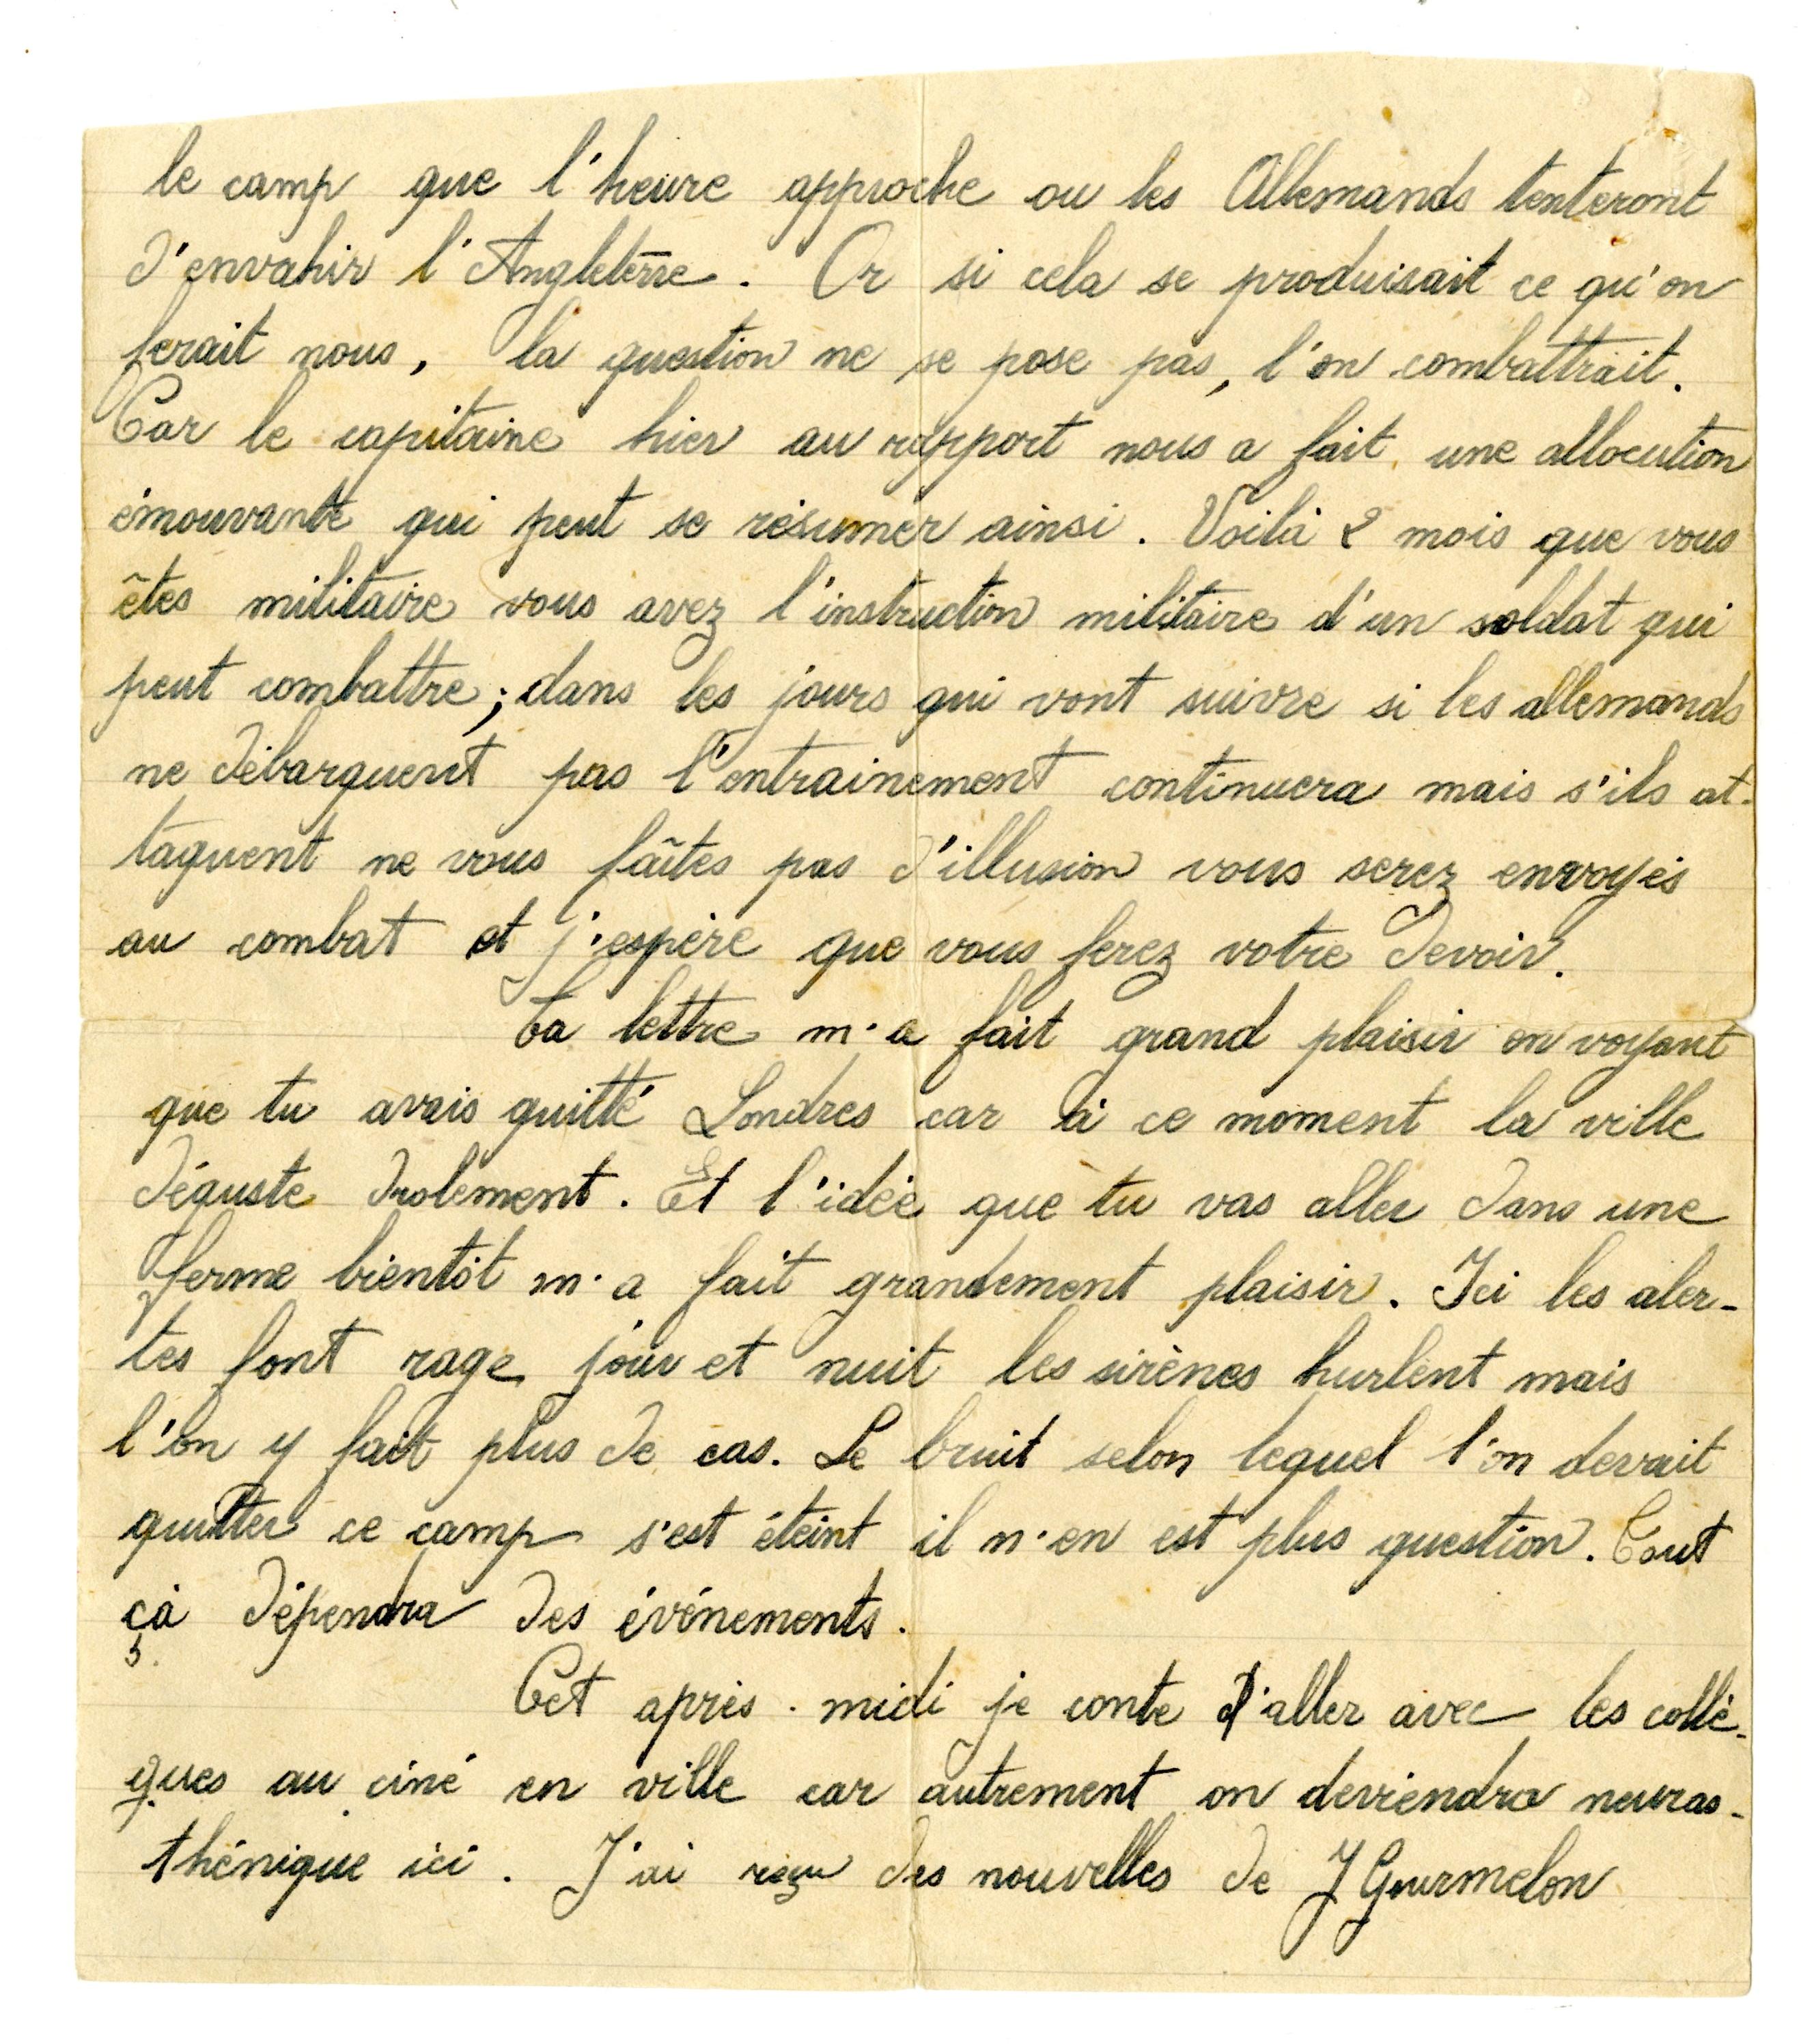 le camp que l'heure approche ou les Allemands tenteront
d'envahir l'Angleterre. Or si cela se produisait ce qu'on
ferait nous, la question ne se pose pas, l'on combattrait.
Car le capitaine hier au rapport nous a fait une allocution
émouvante qui peut se résumer ainsi. Voilà 2 mois que vous
êtes militaire vous avez l'instruction militaire d'un soldat qui
peut combattre; dans les jours qui vont suivre si les allemands
ne débarquent pas l'entrainement continuera mais s'ils at-
taquent ne vous faîtes pas d'illusion vous serez envoyés
au combat et j'espère que vous ferez votre devoir.
Ta lettre m'a fait grand plaisir en voyant
que tu avais quitté Londres car à ce moment la ville
déguste drolement. Et l'idée que tu vas aller dans une
ferme bientôt m'a fait grandement plaisir. Ici les aler-
tes font rage jour et nuit les sirènes hurlent mais
l'on y fait plus de cas. Le bruit selon lequel l'on devait
quitter ce camp s'est éteint il n'en est plus question. Tout
çà dépendra des événements.
Cet après-midi je conte d'aller avec les collè-
gues au ciné en ville car autrement on deviendra neuras-
thénique ici. J'ai reçu des nouvelles de J Gourmelon